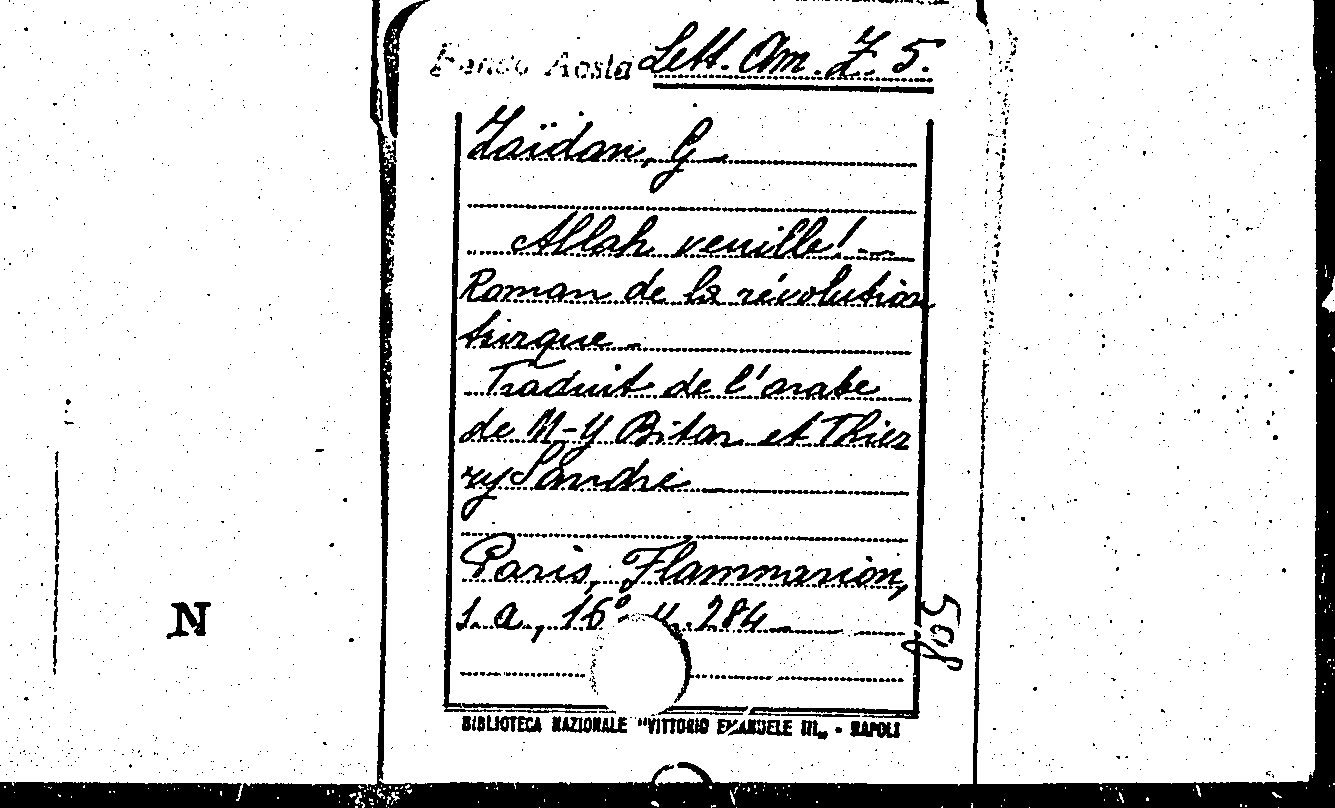 Fondo Aosta Lett. Am. Z. 5.
Zaïdan, G
Allah veuille! -
Roman de la révolution
turque -
Traduit de l'arabe
de M-Y Bitar et Thier
ry Sandre
Paris, Flammarion,
s. a., 16° 284
508
N
BIBLIOTECA NAZIONALE "VITTORIO EMANUELE III„ - NAPOLI